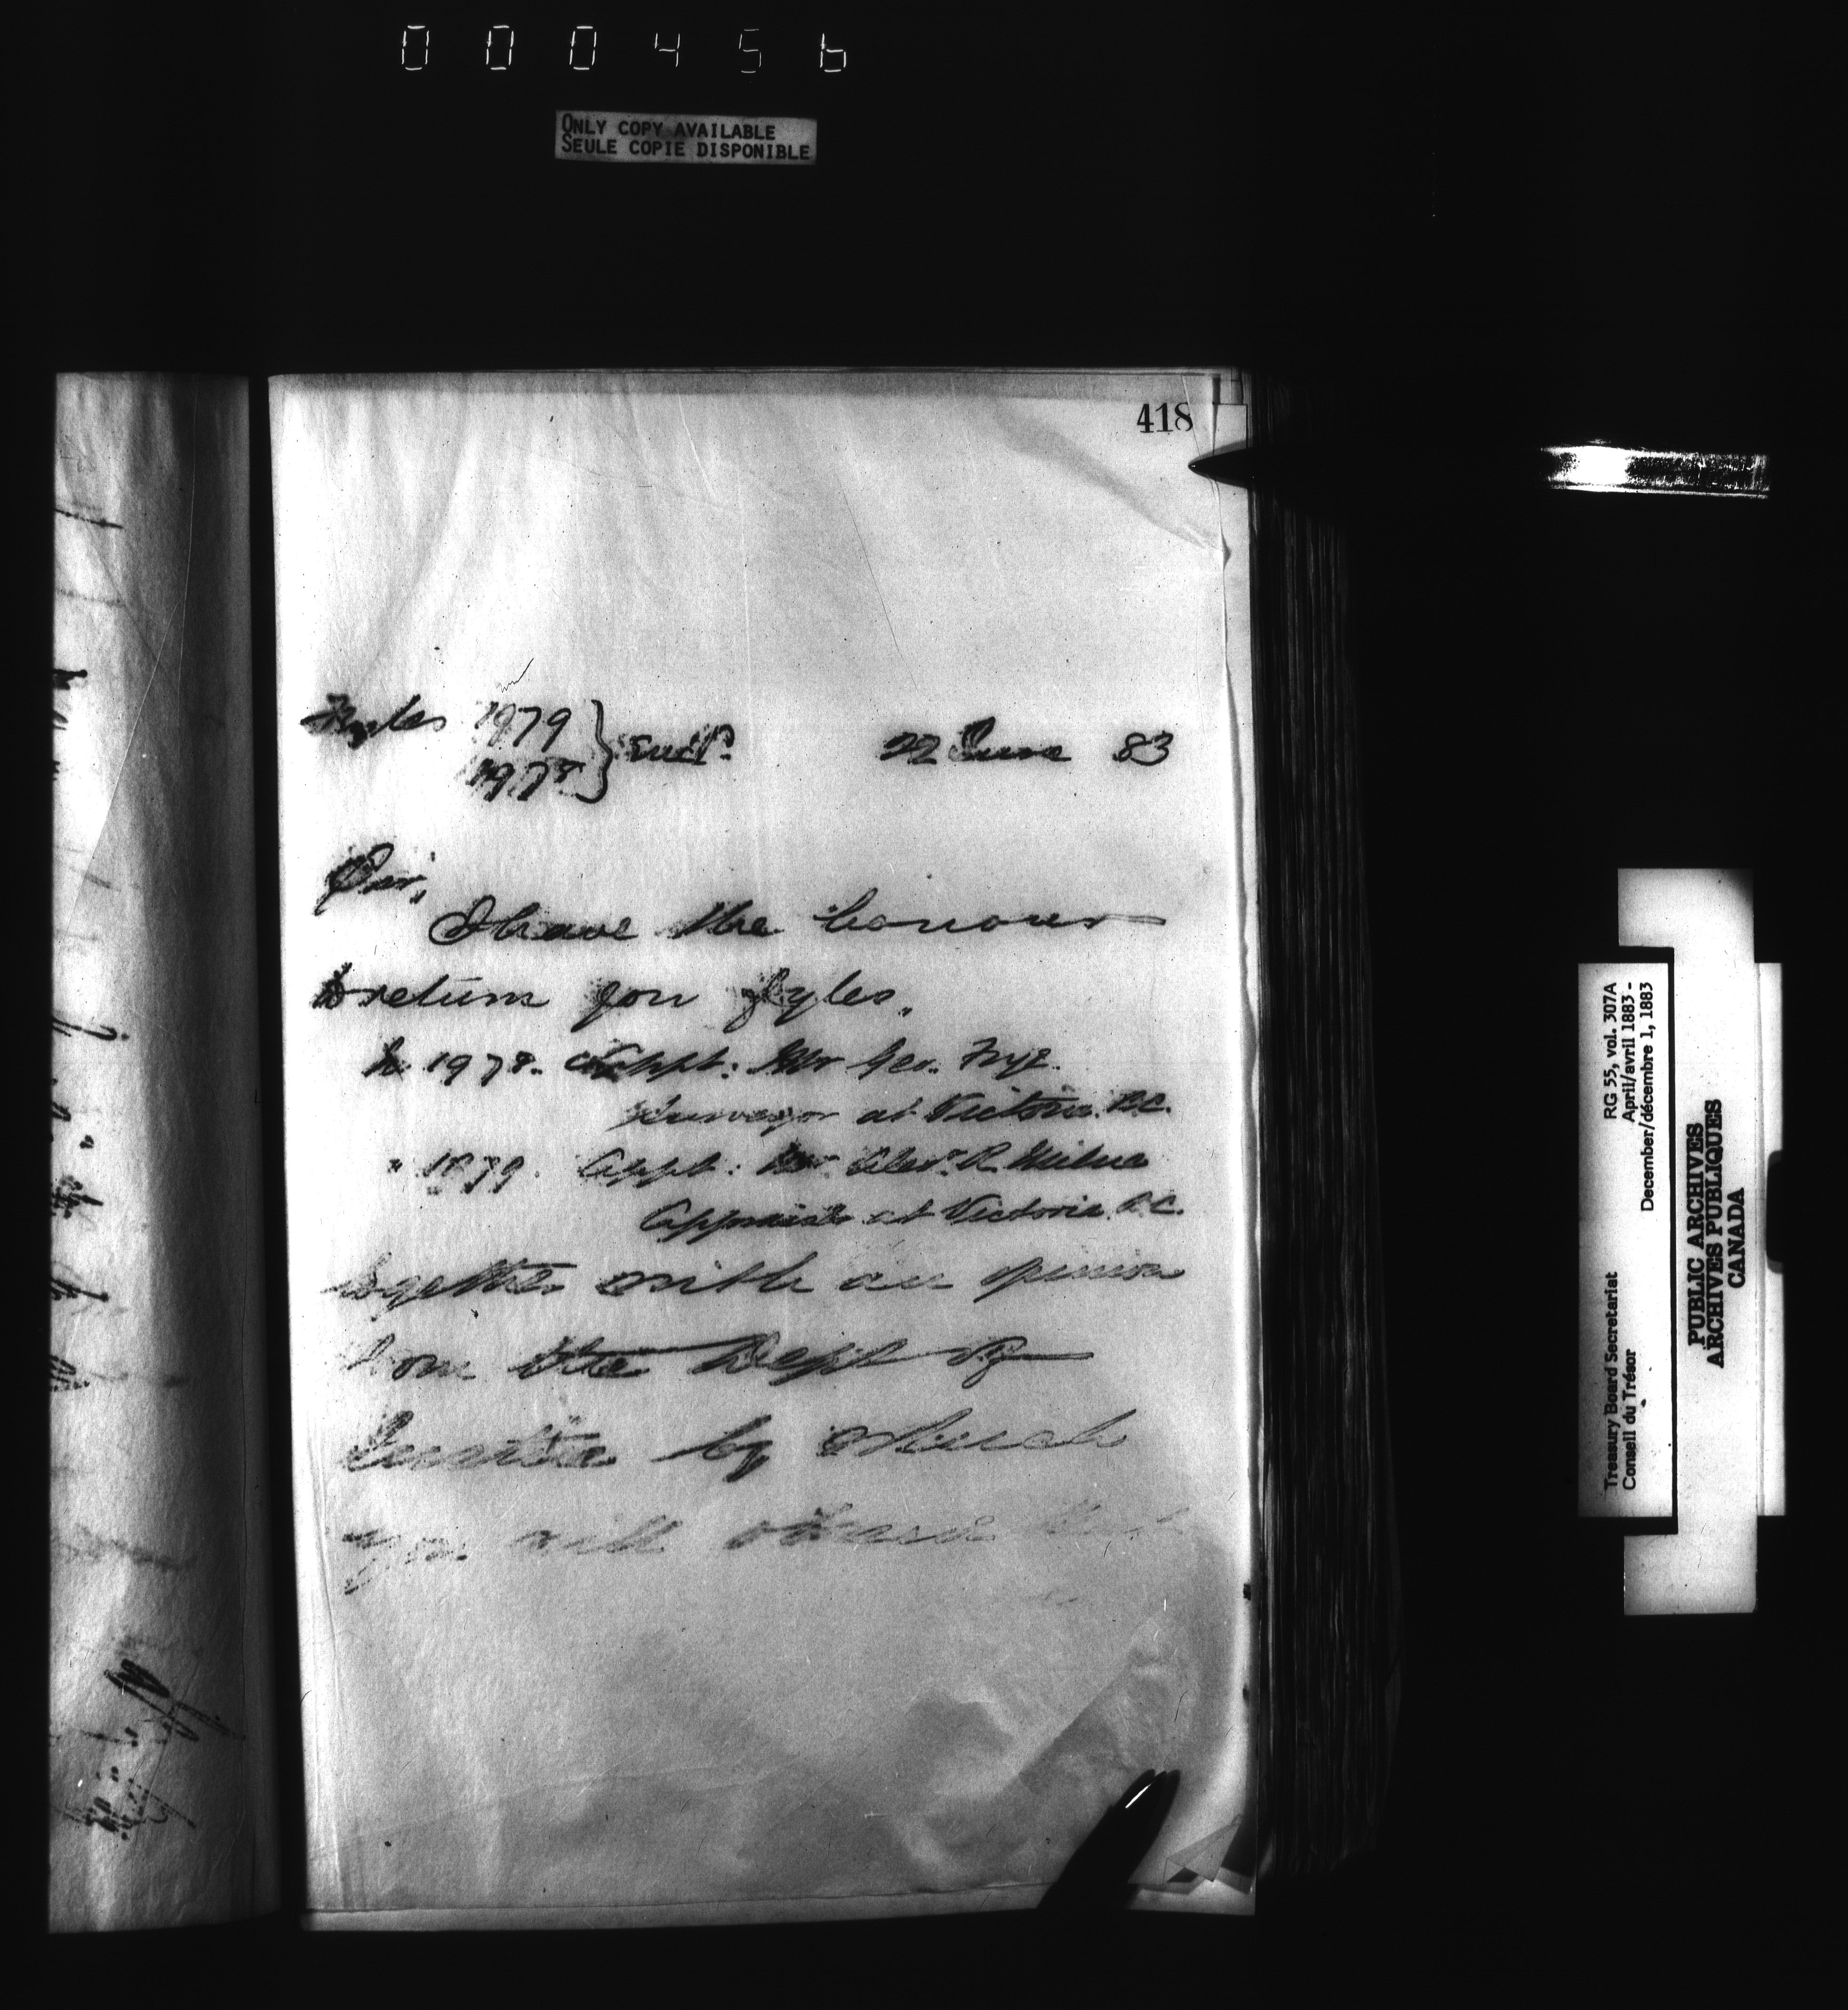 000456
ONLY COPY AVAILABLE
SEULE COPIE DISPONIBLE
418
Fyles 1979
1978 } Encl.
22 June 83
Sir,
I have the honour
to return you fyles,
No 1978. Appt: Mr Geo. Frye
Surveyor at Victoria B.C.
" 1979. Appt: Mr Alexr. R. Milne
Appraiser at Victoria B.C.
together with an opinion
from the Dept of
Justice by which
you will observe that
Treasury Board Secretariat
Conseil du Trésor
RG 55, vol. 307A
April/avril 1883 -
December/décembre 1, 1883
PUBLIC ARCHIVES
ARCHIVES PUBLIQUES
CANADA